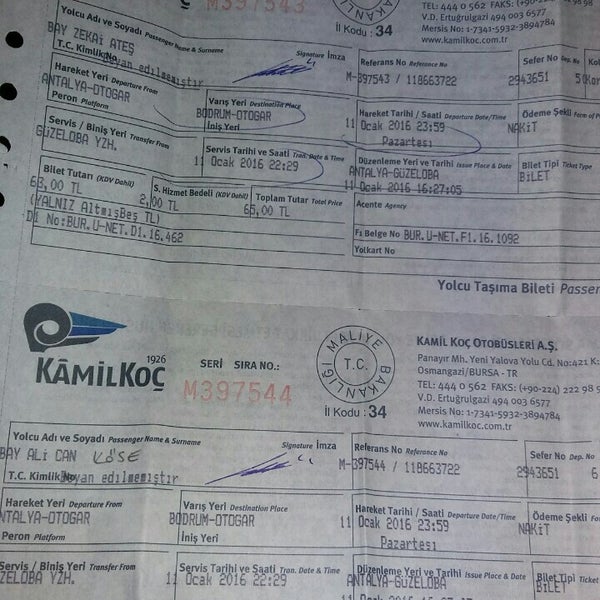 M397543
BAKANLIĞI
İl Kodu : 34
TEL: 444 0 562 FAKS: (+90-224)
V.D. Ertuğrulgazi 494 003 6577
Mersis No: 1-7341-5932-3894784
www.kamilkoc.com.tr
Yolcu Adı ve Soyadı Passenger Name & Surname
Signature İmza
Referans No Reference No
Sefer No
BAY ZEKAİ ATEŞ
M-397543 / 118663722
2943651
T.C. Kimlik No
Beyan edilmemiştir
Hareket Yeri Departure From
Varış Yeri Destination Place
Hareket Tarihi / Saati Departure Date/Time
Ödeme Şekli Form of
ANTALYA-OTOGAR
BODRUM-OTOGAR
11 Ocak 2016 23:59
NAKİT
Peron Platform
İniş Yeri
Pazartesi
Servis / Biniş Yeri Transfer From
Servis Tarihi ve Saati Tran. Date & Time
Düzenleme Yeri ve Tarihi Issue Place & Date
Bilet Tipi Ticket Type
GÜZELOBA YZH.
11 Ocak 2016 22:29
ANTALYA-GÜZELOBA
BİLET
11 Ocak 2016 16:27:05
Bilet Tutarı (KDV Dahil)
S. Hizmet Bedeli (KDV Dahil)
Toplam Tutar Total Price
Acente Agency
63,00 TL
2,00 TL
65,00 TL
(YALNIZ AltmışBeş TL)
DI No:BUR.U-NET.D1.16.462
Fı Belge No BUR.U-NET.F1.16.1092
Yolkart No
Yolcu Taşıma Bileti
1926
KÂMİLKOÇ
SERİ SIRA NO.:
M397544
MALİYE BAKANLIĞI
T.C.
İl Kodu : 34
KAMİL KOÇ OTOBÜSLERİ A.Ş.
Panayır Mh. Yeni Yalova Yolu Cd. No:421 K:
Osmangazi/BURSA - TR
TEL: 444 0 562 FAKS: (+90-224) 222 98
V.D. Ertuğrulgazi 494 003 6577
Mersis No: 1-7341-5932-3894784
www.kamilkoc.com.tr
Yolcu Adı ve Soyadı Passenger Name & Surname
Signature İmza
Referans No Reference No
Sefer No
BAY ALİ CAN KÖSE
M-397544 / 118663722
2943651
6
T.C. Kimlik No
Beyan edilmemiştir
Hareket Yeri Departure From
Varış Yeri Destination Place
Hareket Tarihi / Saati Departure Date/Time
Ödeme Şekli
NTALYA-OTOGAR
BODRUM-OTOGAR
11 Ocak 2016 23:59
NAKİT
Peron Platform
İniş Yeri
Pazartesi
Servis / Biniş Yeri Transfer From
Servis Tarihi ve Saati Tran. Date & Time
Düzenleme Yeri ve Tarihi Issue Place & Date
Bilet Tipi Ticket
ZELOBA YZH.
11 Ocak 2016 22:29
ANTALYA-GÜZELOBA
BİLET